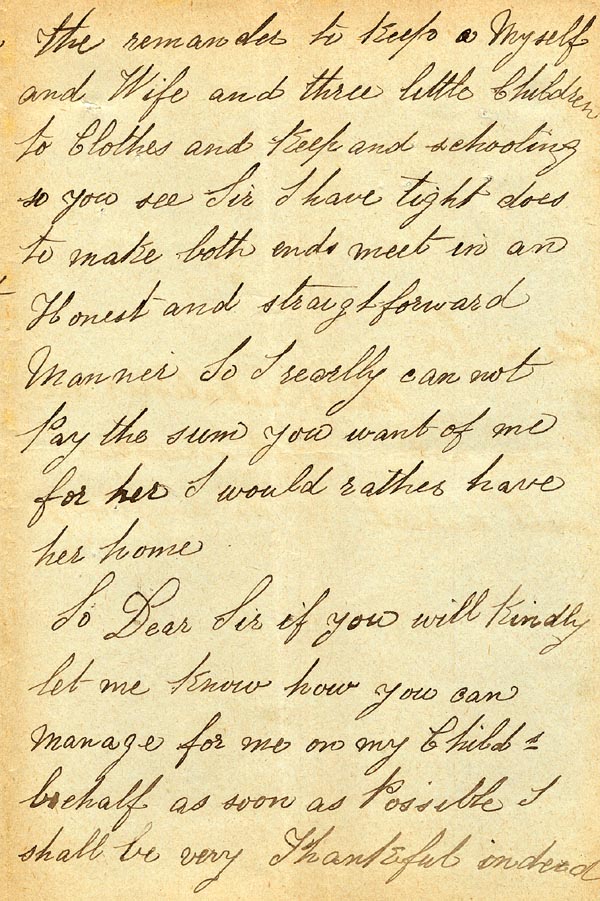 the remander to keep a Myself
and Wife and three little Children
to Clothes and Keep and schooling
so you see Sir I have tight does
to make both ends meet in an
Honest and straigtforward
Manner So I rearlly can not
Pay the sum you want of me
for her I would rather have
her home
So Dear Sir if you will Kindly
let me Know how you can
Manage for me on my Child's
behalf as soon as Possible I
shall be very Thankful indeed